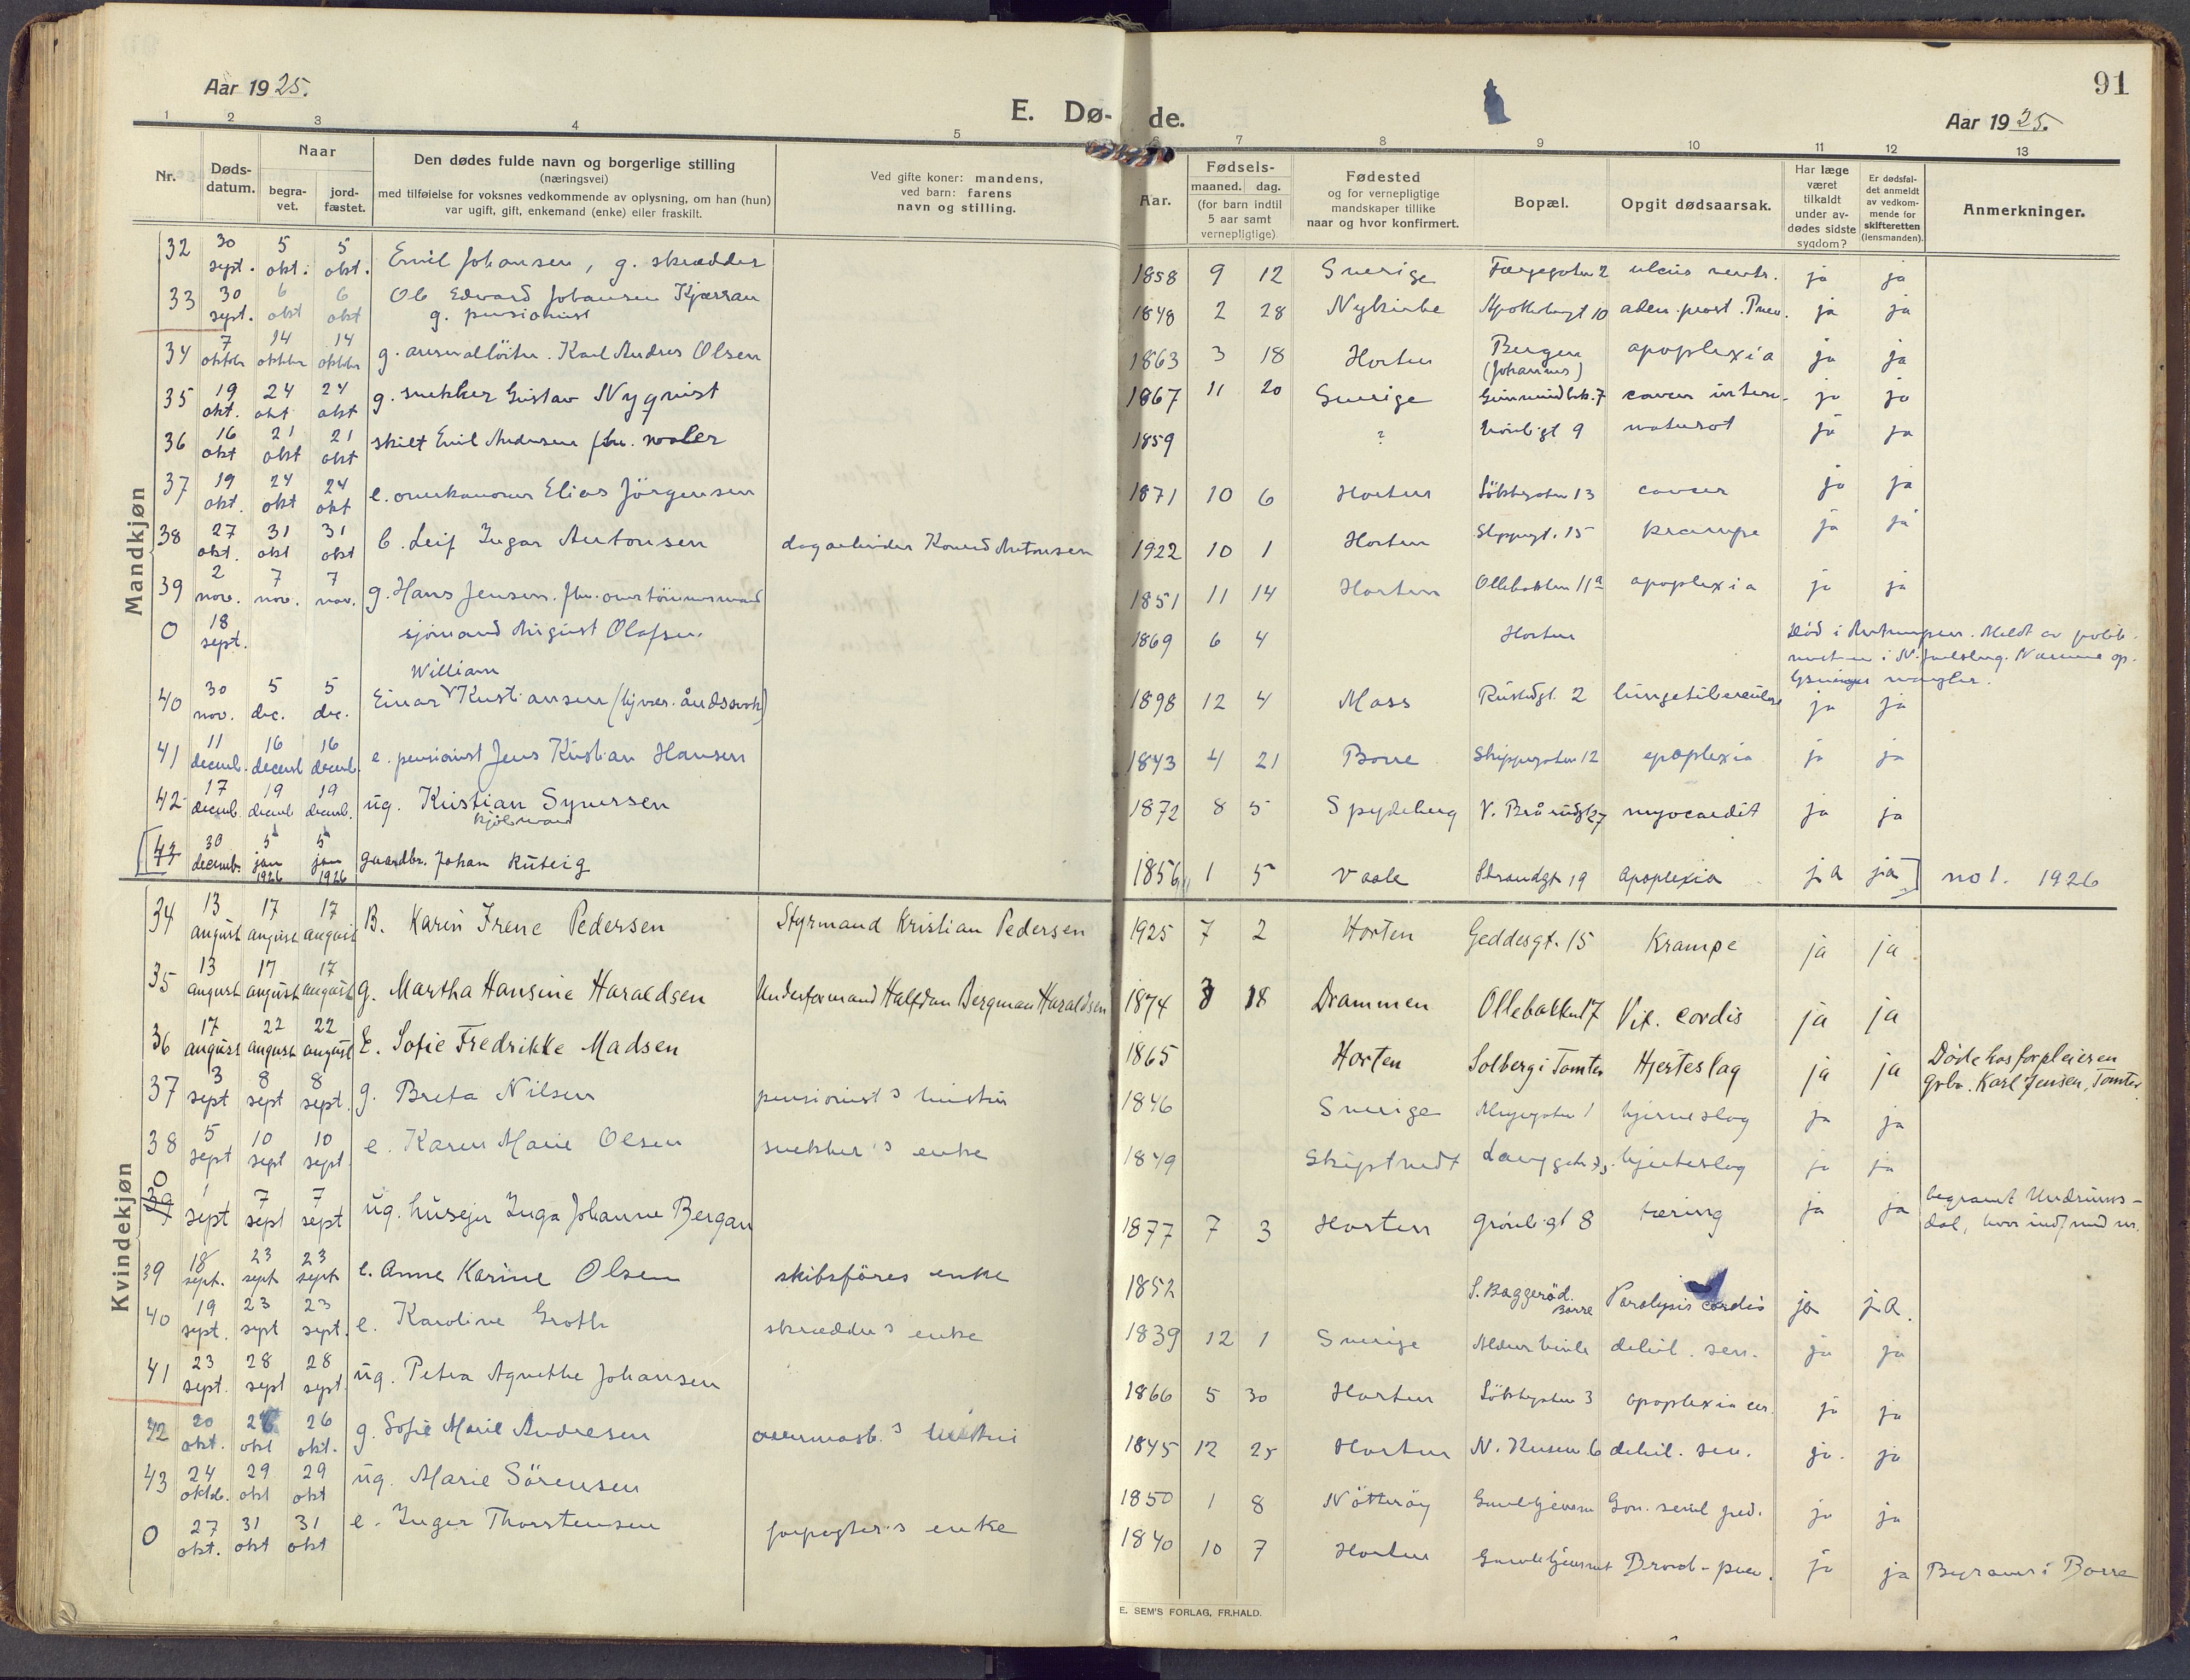 91
Aar 1925.
E. Dø- de.
Aar 1925.
1 2 3 4 5 6 7 8 9 10 11 12 13
Nr.
Døds-
datum.
Naar
begra-
vet.
jord-
fæstet.
Den dødes fulde navn og borgerlige stilling
(næringsvei)
med tilføielse for voksnes vedkommende av oplysning, om han (hun)
var ugift, gift, enkemand (enke) eller fraskilt.
Ved gifte koner: mandens,
ved barn: farens
navn og stilling.
Aar.
Fødsels-
maaned. dag.
(for barn indtil
5 aar samt
vernepligtige)
Fødested
og for vernepligtige
mandskaper tillike
naar og hvor konfirmert.
Bopæl.
Opgit dødsaarsak.
Har læge
været
tilkaldt
under av-
dødes sidste
sygdom?
Er dødsfal-
det anmeldt
av vedkom-
mende for
skifteretten
(lensmanden).
Anmerkninger.
Mandkjøn
32 30 sept. 5 okt. 5 okt. Emil Johansen, g. skrædder 1858 9 12 Sverige ja ja
33 30 sept. 6 okt 6 okt Ole Edvard Johansen Kjærran
g. pensionist 1848 2 28 Nykirke aden. prost. Pneu. ja ja
34 7 oktbr 14 oktbr 14 oktbr g. Karl Andres Olsen 1863 3 18 Horten Bergen
(Johannes) apoplexia ja ja
35 19 okt. 24 okt 24 okt g. snekker Gustav Nyqvist 1867 11 20 Sverige ja ja
36 16 okt 21 okt 21 okt skilt Emil Andersen fhv. maler 1859 ? ja ja
37 19 okt. 24 okt 24 okt e. Elias Jörgensen 1871 10 6 Horten cancer ja ja
38 27 okt. 31 okt 31 okt b. Leif Ingar Antonsen dagarbeider Konrad Antonsen 1922 10 1 Horten krampe ja ja
39 2 nov. 7 nov. 7 nov. g. Hans Jensen. fhv. 1851 11 14 Horten Ollebakken 11a apoplexia ja ja
0 18 sept. sjömand August Olafsen. 1869 6 4 Horten
William
40 30 nov. 5 dec. 5 dec. Einar Kristiansen 1898 12 4 Moss Rustadgt. 2 ja ja
41 11 decemb. 16 decemb 16 decemb. e. pensionist Jens Kristian Hansen 1843 4 21 Borre Skippergaten 12 apoplexia ja ja
42 17 decemb. 19 decemb 19 decemb. ug. Kristian Syversen 1872 8 5 Spydeberg V. Brårudgt 27 myocardit ja ja
[43 30 decemb. 5 jan 1926 5 jan 1926 gaardbr. Johan Ruteig 1856 1 5 Vaale Strandgt 19 apoplexia ja ja] no 1. 1926
Kvindekjøn
34 13 august 17 august 17 august B. Karin Irene Pedersen Styrmand Kristian Pedersen 1925 7 2 Horten Geddesgt. 15 Krampe ja ja
35 13 august 17 august 17 august g. Martha Hansine Haraldsen Underformand Halfdan Bergman Haraldsen 1874 3 18 Drammen Ollebakken 17 Vit. cordis ja ja
36 17 august 22 august 22 august E. Sofie Fredrikke Madsen 1865 Horten Solberg i Tomter Hjerteslag ja ja Døde hos forpleieren
gbr. Karl Jensen, Tomter
37 3 sept 8 sept 8 sept. g. Breta Nilsen pensionist's hustru 1846 Sverige hjerneslag ja ja
38 5 sept 10 sept 10 sept. e. Karen Marie Olsen snekker's enke 1849 Skiptvedt hjerteslag ja ja
0 39 1 sept 7 sept 7 sept ug. huseier Inga Johanne Bergan 1877 7 3 Horten Grönligt 8 tæring ja ja begravet Undrums-
dal,
39 18 sept. 23 sept 23 sept e. Anne Karine Olsen skibsföres enke 1852 S. Baggeröd.
Borre Paralysis cordis ja ja.
40 19 sept. 23 sept 23 sept. e. Karoline Groth skrædder's enke 1839 12 1 Sverige debil. sen. ja ja
41 23 sept. 28 sept 28 sept. ug. Petra Agnethe Johansen 1866 5 30 Horten apoplexia cer. ja ja
42 20 okt. 26 okt 26 okt. g. Sofie Marie Andresen 1845 12 25 Horten debil. sen. ja. ja
43 24 oktob. 29 okt 29 okt ug. Marie Sörensen 1850 1 8 Nötteröy Gamlehjemmet ja ja
0 27 okt. 31 okt 31 okt e. Inger Thorstensen forpagter's enke 1840 10 7 Horten Gamlehjemmet ja ja Begraves i Borre
E. SEM'S FORLAG, FR.HALD.